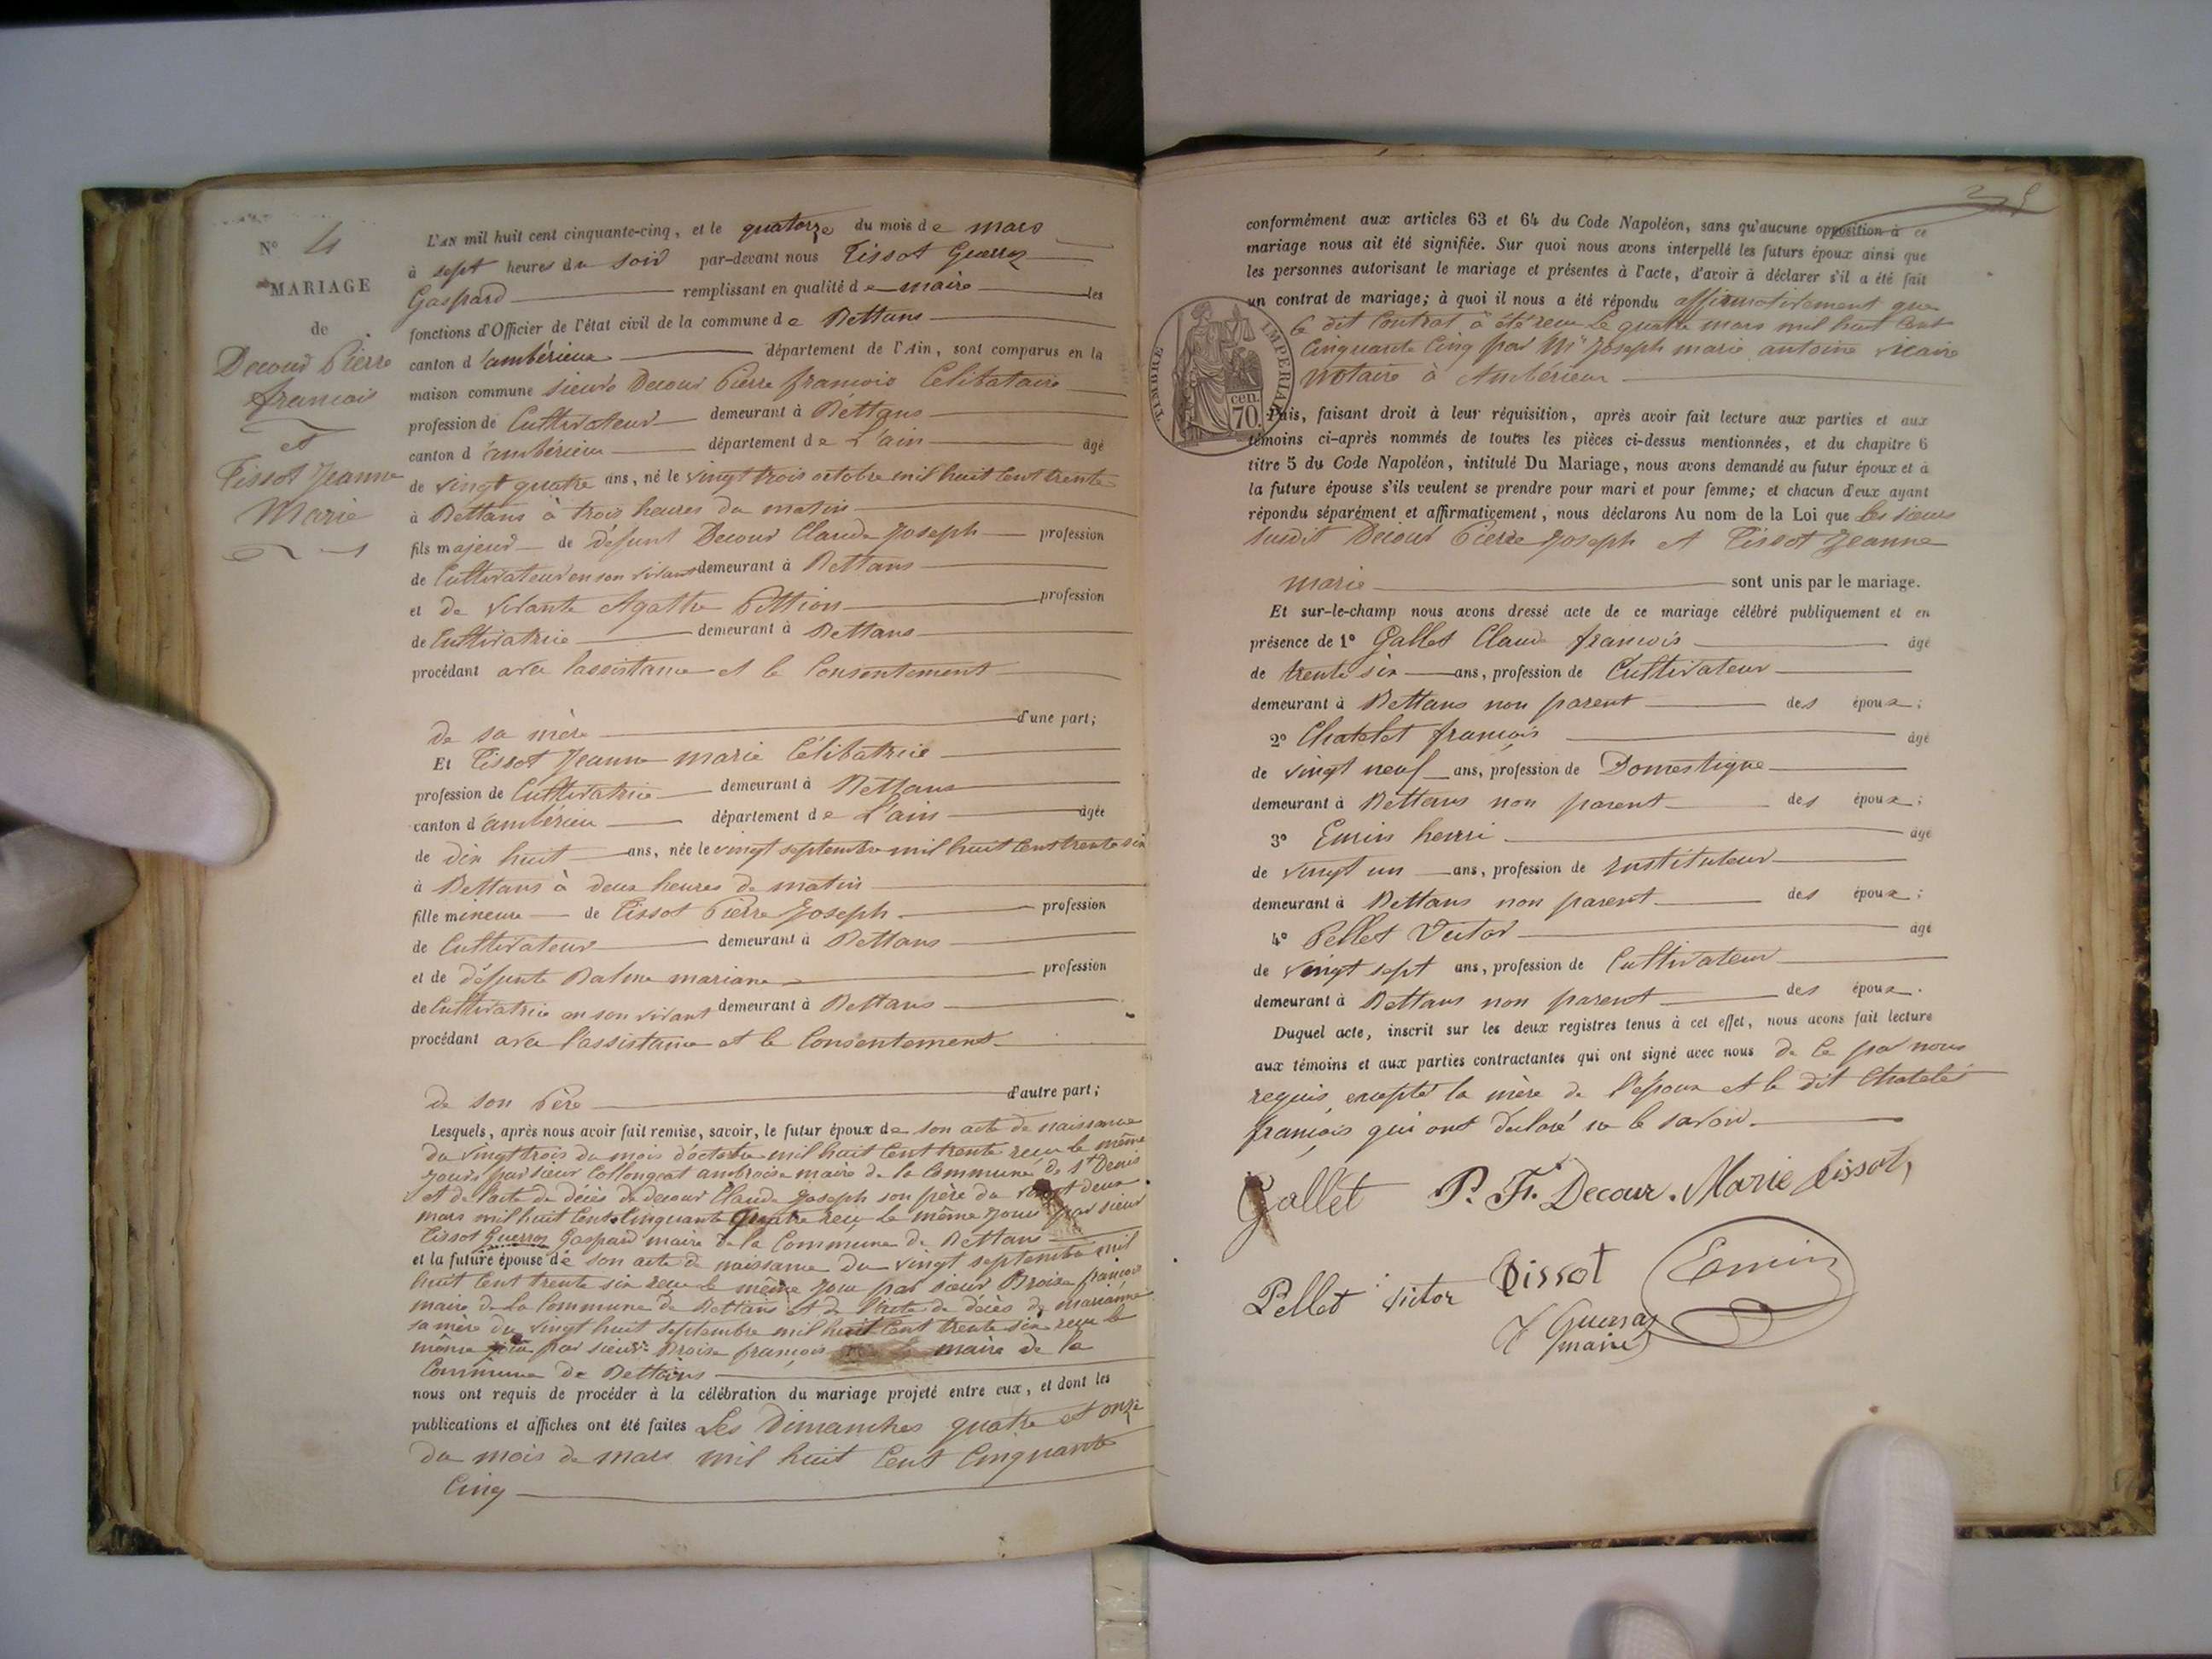 N° 4
MARIAGE
de
Decour Pierre
francois
et
Tissot Jeanne
Marie
L'AN mil huit cent cinquante-cinq, et le quatorze du mois de mars
à sept heures du soir par-devant nous Tissot Guerraz
Gaspard remplissant en qualité de maire les
fonctions d'Officier de l'état civil de la commune de Bettans
canton d'ambérieux département de l'Ain, sont comparus en la
maison commune sieurs Decour Pierre francois Célibataire
profession de Cultivateur demeurant à Bettans
canton d'ambérieu département de L'ain âgé
de vingt quatre ans, né le vingt trois octobre mil huit cent trente
à Bettans à trois heures du matin
fils majeur de défunt Decour Claude Joseph profession
de Cultivateur en son vivant demeurant à Bettans
et de vivante Agathe Pittion profession
de Cultivatrice demeurant à Bettans
procédant avec l'assistance et le Consentement
de sa mère d'une part;
Et Tissot Jeanne marie Célibatrice
profession de Cultivatrice demeurant à Bettans
canton d'ambérieu département de L'ain âgée
de dix huit ans, née le vingt septembre mil huit cent trente six
à Bettans à deux heures de matin
fille mineure de Tissot Pierre Joseph profession
de Cultivateur demeurant à Bettans
et de défunte Balme mariane profession
de Cultivatrice en son vivant demeurant à Bettans
procédant avec l'assistance et le Consentement
de son Père d'autre part;
Lesquels, après nous avoir fait remise, savoir, le futur époux de son acte de naissance
du vingt trois du mois d'octobre mil huit cent trente reçu le même
jour par sieur Collongeat ambroise maire de la Commune de St Denis
et de l'acte de décès de decour Claude Joseph son père du vingt deux
mars mil huit cent Cinquante quatre reçu le même jour par sieur
Tissot Guerraz Gaspard maire de la Commune de Bettans
et la future épouse de son acte de naissance du vingt septembre mil
huit cent trente six reçu le même jour par sieur Broise françois
maire de la Commune de Bettans et de l'acte de décès de marianne
sa mère du vingt huit septembre mil huit cent trente six reçu le
même jour par sieur Broise françois maire de la
Commune de Bettans
nous ont requis de procéder à la célébration du mariage projeté entre eux, et dont les
publications et affiches ont été faites Les Dimanches quatre et onze
du mois de mars mil huit Cent Cinquante
Cinq
conformément aux articles 63 et 64 du Code Napoléon, sans qu'aucune opposition à ce
mariage nous ait été signifiée. Sur quoi nous avons interpellé les futurs époux ainsi que
les personnes autorisant le mariage et présentes à l'acte, d'avoir à déclarer s'il a été fait
un contrat de mariage; à quoi il nous a été répondu affirmativement que
le dit Contrat a été reçu le quatre mars mil huit Cent
Cinquante Cinq par Me Joseph marie antoine vicaire
notaire à Ambérieux
TIMBRE IMPERIAL
cen. 70.
Puis, faisant droit à leur réquisition, après avoir fait lecture aux parties et aux
témoins ci-après nommés de toutes les pièces ci-dessus mentionnées, et du chapitre 6
titre 5 du Code Napoléon, intitulé Du Mariage, nous avons demandé au futur époux et à
la future épouse s'ils veulent se prendre pour mari et pour femme; et chacun d'eux ayant
répondu séparément et affirmativement, nous déclarons Au nom de la Loi que les sieurs
susdit Decour Pierre Joseph et Tissot Jeanne
marie sont unis par le mariage.
Et sur-le-champ nous avons dressé acte de ce mariage célébré publiquement et en
présence de 1° Gallet Claude francois âgé
de trente six ans, profession de Cultivateur
demeurant à Bettans non parent des époux;
2° Chatelet françois âgé
de vingt neuf ans, profession de Domestique
demeurant à Bettans non parent des époux;
3° henri âgé
de vingt un ans, profession de instituteur
demeurant à Bettans non parent des époux;
4° Pellet Victor âgé
de vingt sept ans, profession de Cultivateur
demeurant à Bettans non parent des époux.
Duquel acte, inscrit sur les deux registres tenus à cet effet, nous avons fait lecture
aux témoins et aux parties contractantes qui ont signé avec nous de ce par nous
requis, excepté la mère de l'époux et le dit Chatelet
françois qui ont declaré ne le savoir.
Gallet P. F. Decour. Marie tissot,
Pellet victor Tissot
T Guerraz
maire